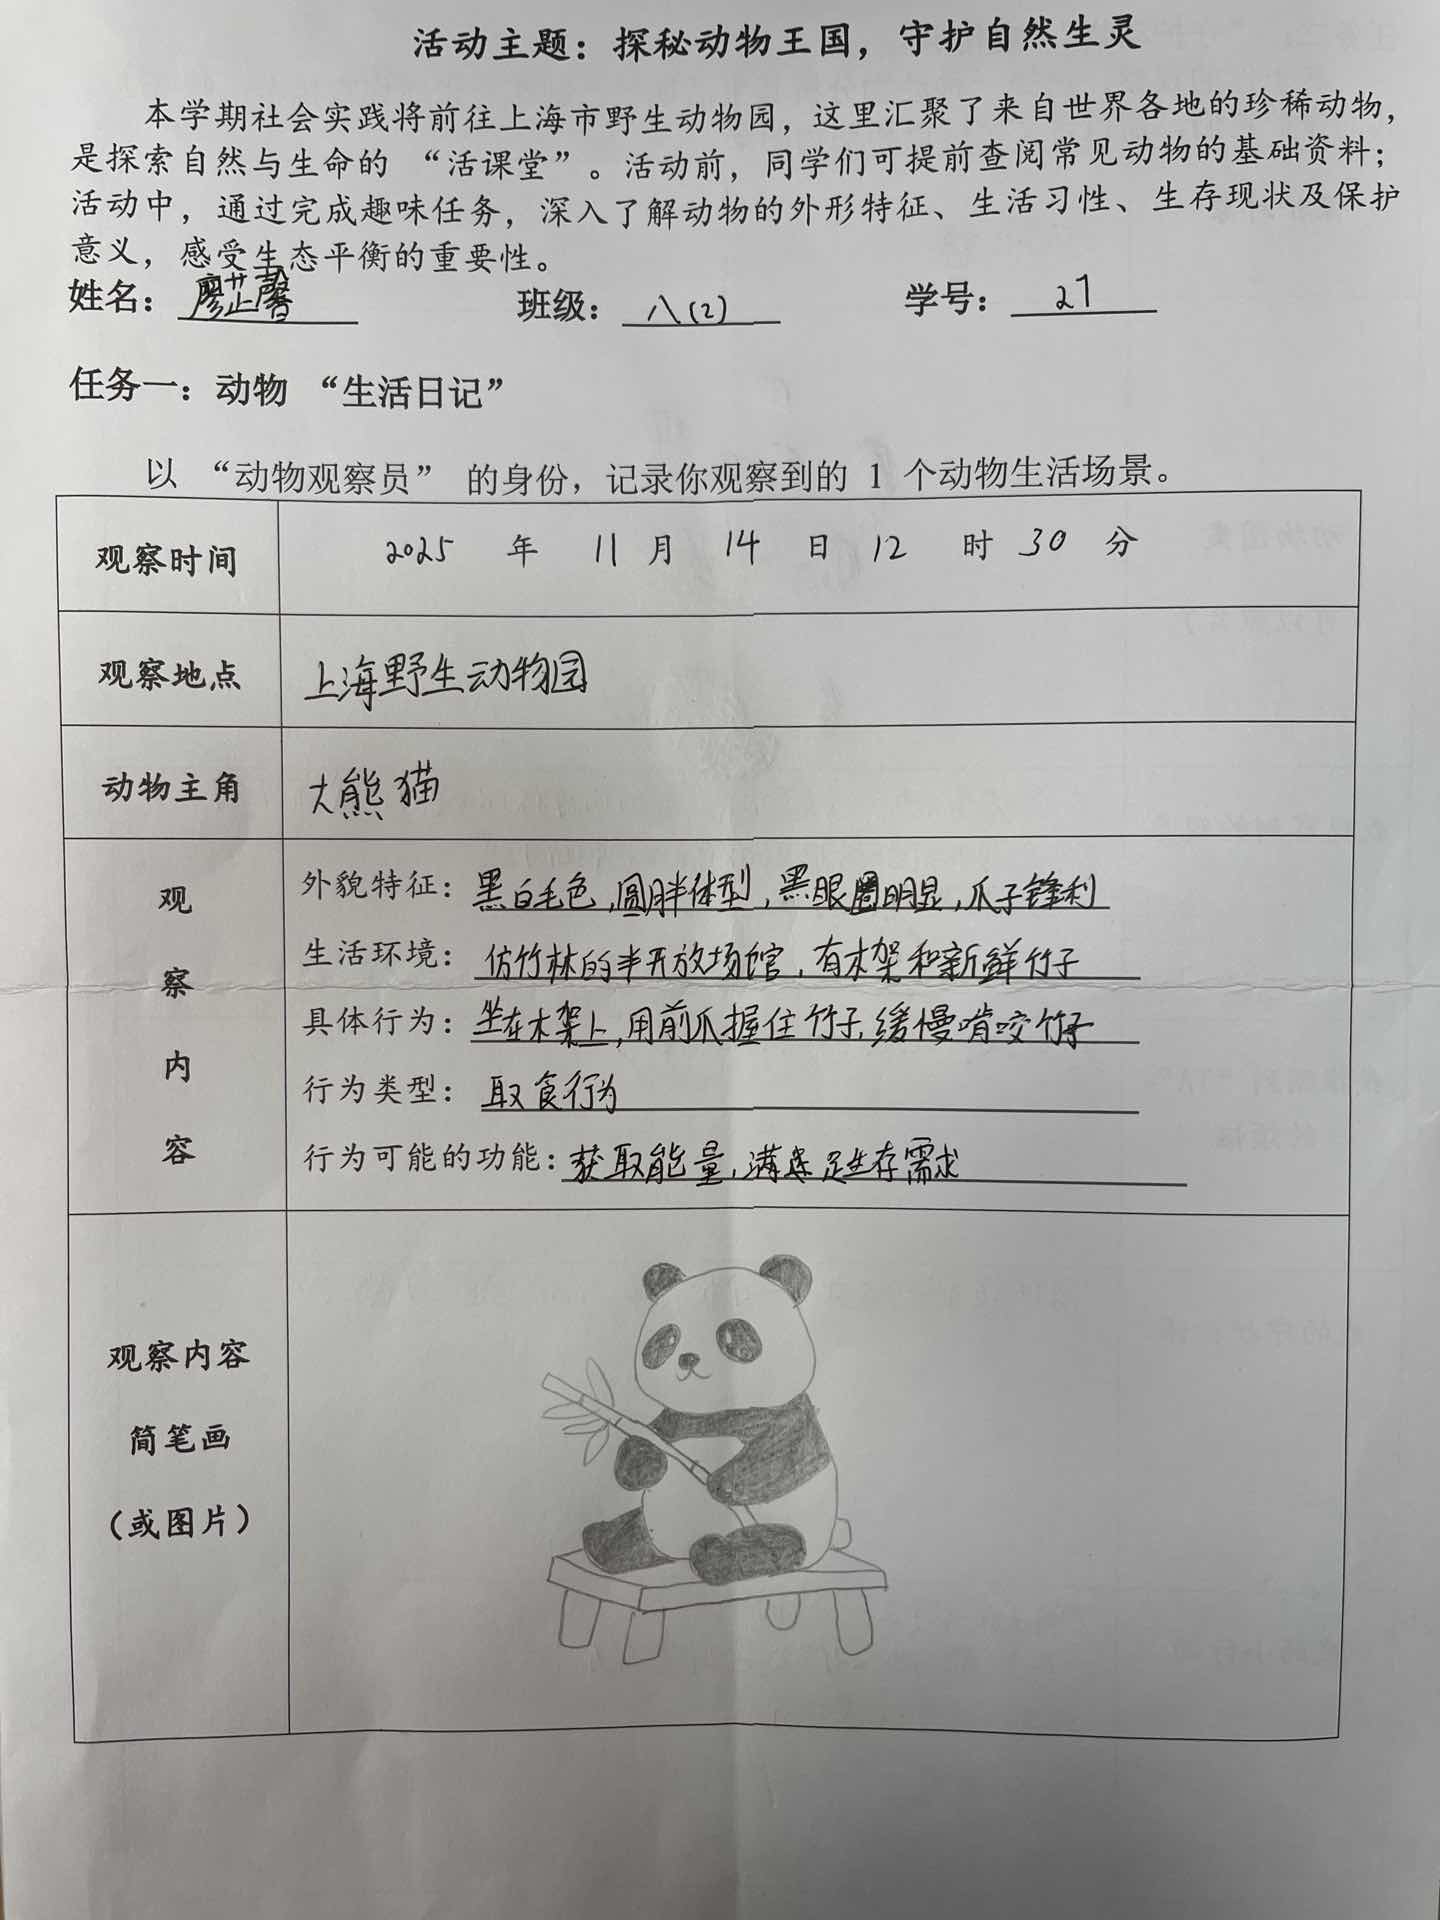 活动主题：探秘动物王国，守护自然生灵
本学期社会实践将前往上海市野生动物园，这里汇聚了来自世界各地的珍稀动物，
是探索自然与生命的 “活课堂”。活动前，同学们可提前查阅常见动物的基础资料；
活动中，通过完成趣味任务，深入了解动物的外形特征、生活习性、生存现状及保护
意义，感受生态平衡的重要性。
姓名：廖芷馨 班级：八(2) 学号：27
任务一：动物 “生活日记”
以 “动物观察员” 的身份，记录你观察到的 1 个动物生活场景。
观察时间 2025 年 11 月 14 日 12 时 30 分
观察地点 上海野生动物园
动物主角 大熊猫
观察内容
外貌特征：黑白毛色，圆胖体型，黑眼圈明显，爪子锋利
生活环境：仿竹林的半开放场馆，有木架和新鲜竹子
具体行为：坐在木架上，用前爪握住竹子，缓慢啃咬竹子
行为类型：取食行为
行为可能的功能：获取能量，满足生存需求
观察内容
简笔画
（或图片）